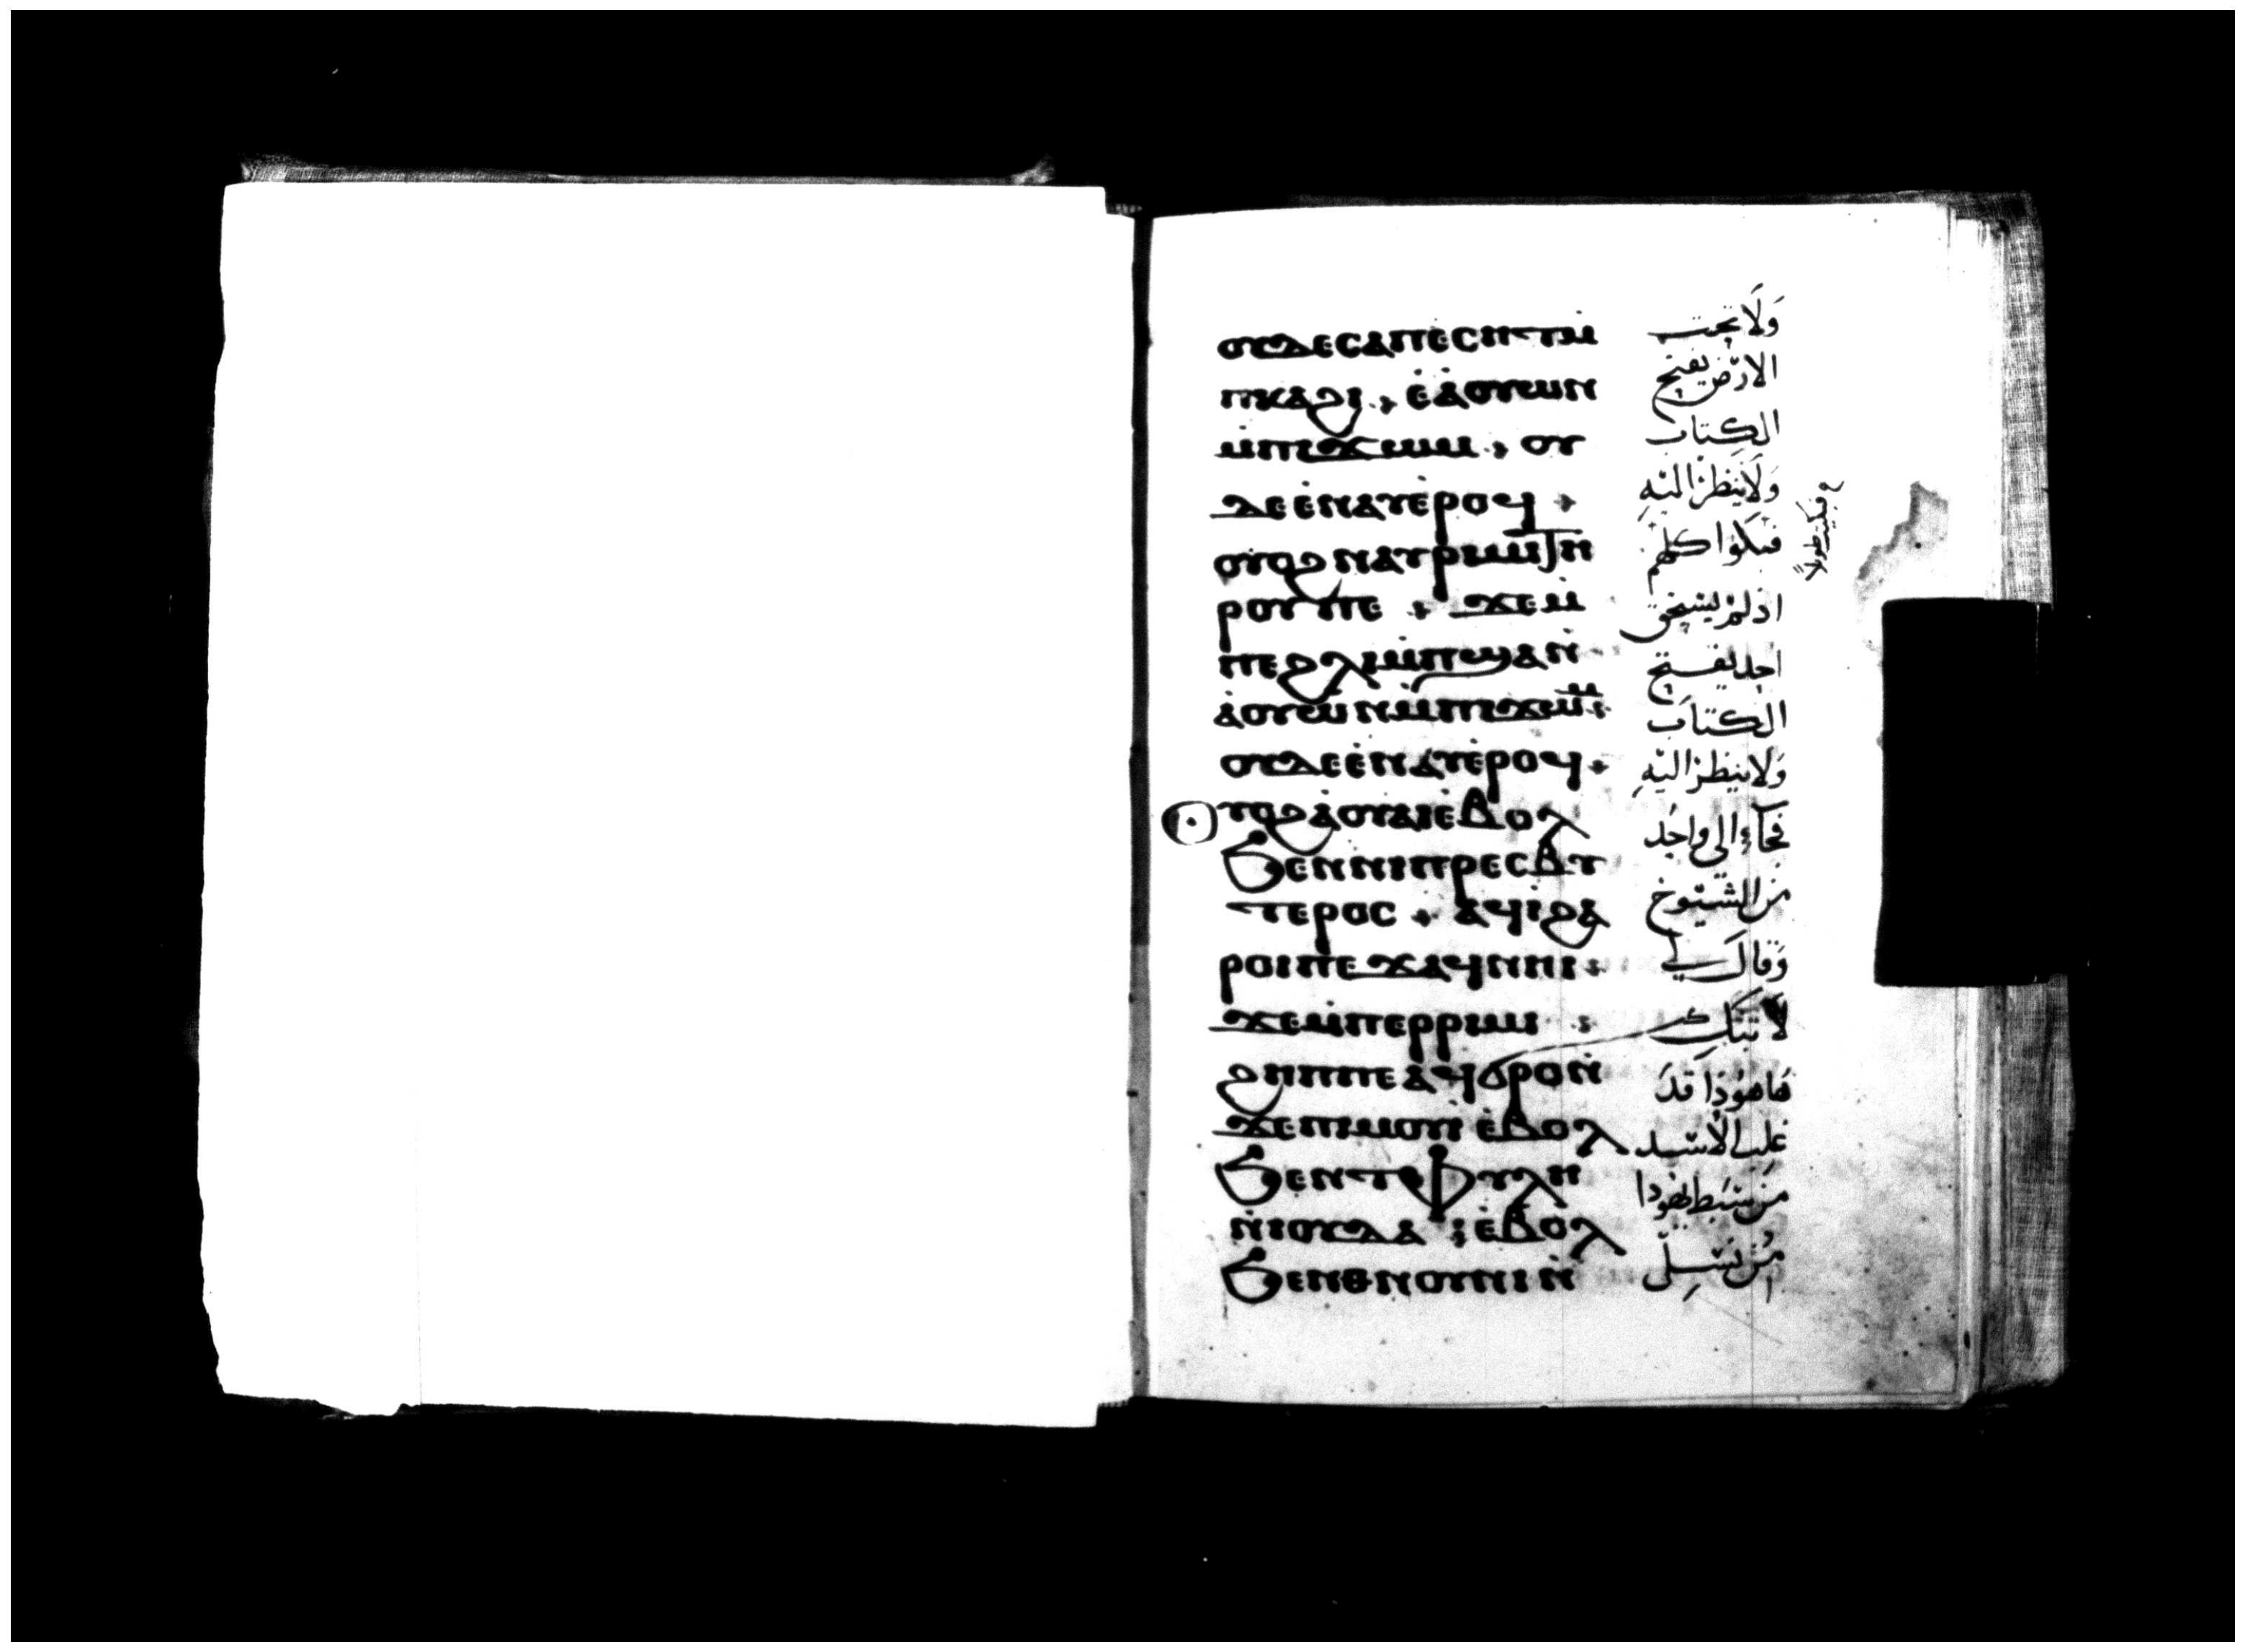 ⲟⲩⲇⲉⲥⲁⲡⲉⲥⲏⲧⲙ̇
ⲡⲕⲁϩⲓ ⲉ̇ⲁ̇ⲟⲩⲱⲛ
ⲙ̇ⲡⲓϫⲱⲙ ⲟⲩ
ⲇⲉⲉ̇ⲛⲁⲩⲉ̇ⲣⲟϥ
ⲟⲩⲟϩⲛⲁⲩⲣⲓⲙⲓⲧⲏ
ⲣⲟⲩⲡⲉ ϫⲉⲙ̇
ⲡⲉϩⲗⲓⲙ̇ⲡϣⲁⲛ̇
ⲁ̇ⲟⲩⲱⲛⲙ̇ⲡⲓϫⲱⲙ
ⲟⲩⲇⲉⲉ̇ⲛⲁⲩⲉ̇ⲣⲟϥ
ⲟⲩⲟϩⲁ̇ⲟⲩⲁⲓⲉⲃⲟⲗ
ϧⲉⲛⲛⲓⲡⲣⲉⲥⲃⲩ
ⲧⲉⲣⲟⲥ ⲁϥⲓ̇ϩⲁ
ⲣⲟⲓⲡⲉϫⲁϥⲛⲏⲓ
ϫⲉⲙ̇ⲡⲉⲣⲣⲓⲙⲓ
ϩⲏⲡⲡⲉⲁϥϭⲣⲟⲛ̇
ϫⲉⲡⲓⲙⲟⲩⲓ ⲉ̇ⲃⲟⲗ
ϧⲉⲛⲧⲉⲫⲩⲗⲏ
ⲛ̇ⲓⲟⲩⲇⲁ ⲉ̇ⲃⲟⲗ
ϧⲉⲛⲑⲛⲟⲩⲛⲓⲛ̇
وَلَا تحت
الارض يفتح
الكتاب
وَلَا ينظر اليْهِ
فبكوا كلهم
اذ لمْ يستحق
احد يفتح
الكتاب
وَلا ينظر اليْهِ
فجاءَ الى واحد
من الشيوخ
وَقال لي
لَا تبك
هَاهوذا قدَ
غلب الاسد
من سبط يهودا
من نسل
فبكيت طويلاً